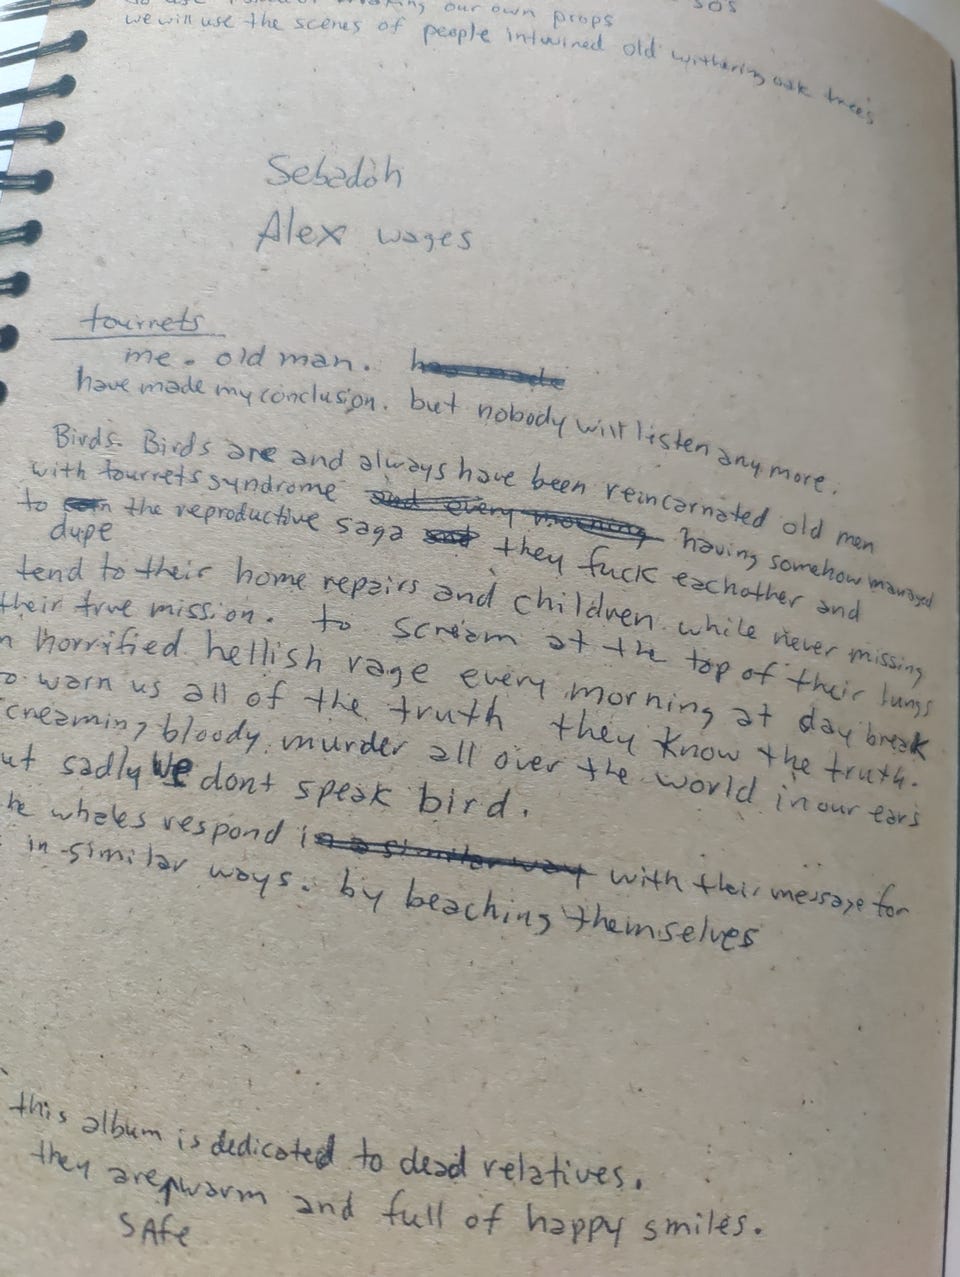 our own props
SOS
we will use the scenes of people intwined old withering oak trees
Sebadoh
Alex wages
tourrets
me. old man.
have made my conclusion. but nobody will listen any more.
Birds. Birds are and always have been reincarnated old men
with tourrets syndrome and every morning having somehow managed
to the reproductive saga they fuck eachother and
dupe
tend to their home repairs and children while never missing
their true mission. to scream at the top of their lungs
n horrified hellish rage every morning at day break
o warn us all of the truth they know the truth.
creaming bloody murder all over the world in our ears
ut sadly We dont speak bird.
he whales respond in a similar way with their message for
in similar ways. by beaching themselves
this album is dedicated to dead relatives.
they are warm and full of happy smiles.
SAfe